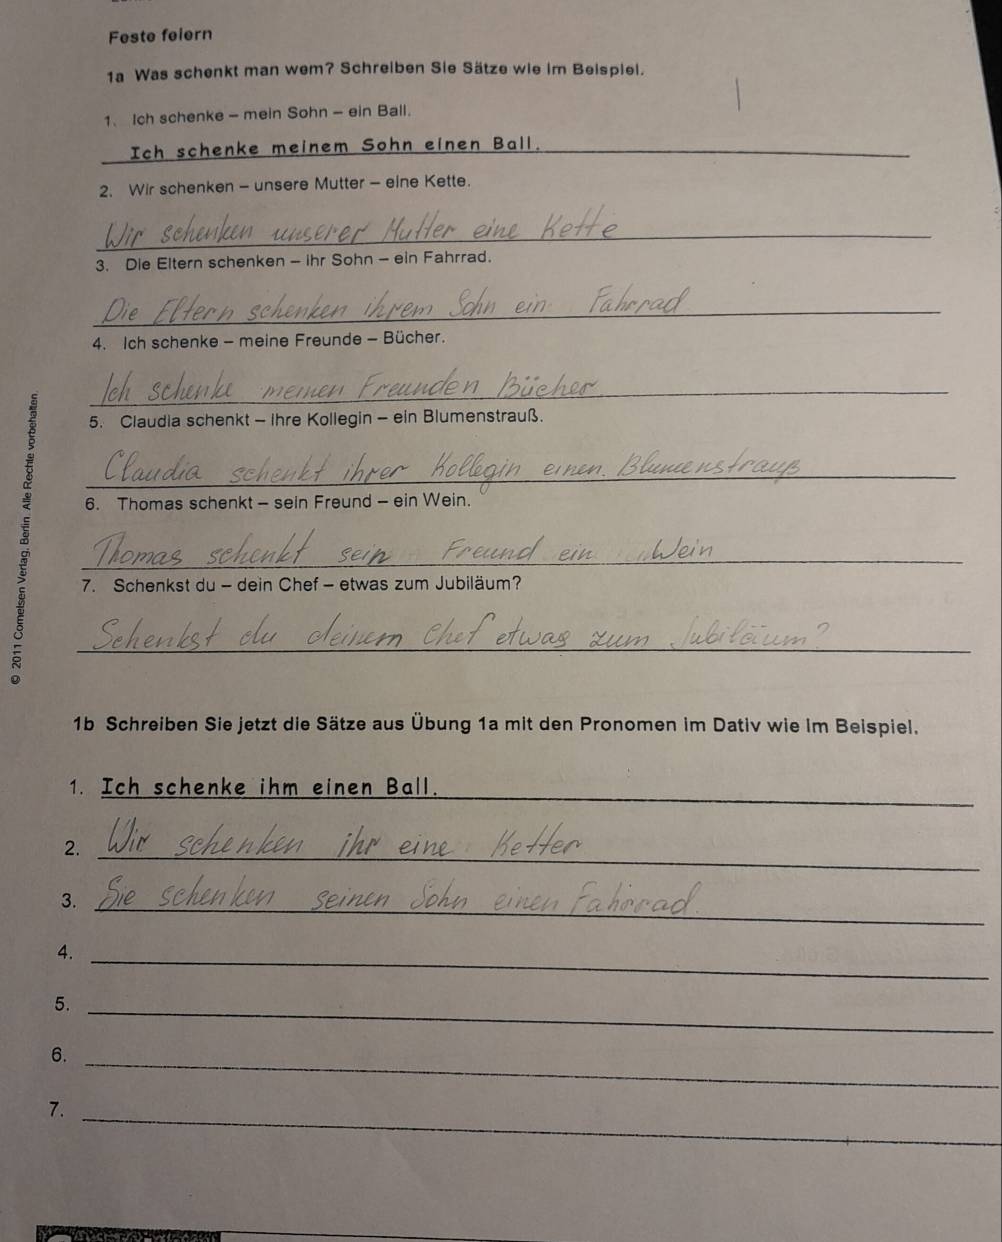 Feste feiern
1a Was schenkt man wem? Schreiben Sie Sätze wie im Beispiel.
1. Ich schenke – mein Sohn – ein Ball.
Ich schenke meinem Sohn einen Ball.
2. Wir schenken – unsere Mutter – eine Kette.
Wir schenken unserer Mutter eine Kette
3. Die Eltern schenken – ihr Sohn – ein Fahrrad.
Die Eltern schenken ihrem Sohn ein Fahrrad
4. Ich schenke – meine Freunde – Bücher.
Ich schenke meinen Freunden Bücher
5. Claudia schenkt – ihre Kollegin – ein Blumenstrauß.
Claudia schenkt ihrer Kollegin einen Blumenstrauß
6. Thomas schenkt – sein Freund – ein Wein.
Thomas schenkt sein Freund ein Wein
7. Schenkst du – dein Chef – etwas zum Jubiläum?
Schenkst du deinem Chef etwas zum Jubiläum?
1b Schreiben Sie jetzt die Sätze aus Übung 1a mit den Pronomen im Dativ wie im Beispiel.
1. Ich schenke ihm einen Ball.
2. Wir schenken ihr eine Ketter
3. Sie schenken seinen Sohn einen Fahrrad.
4.
5.
6.
7.
© 2011 Cornelsen Verlag, Berlin. Alle Rechte vorbehalten.